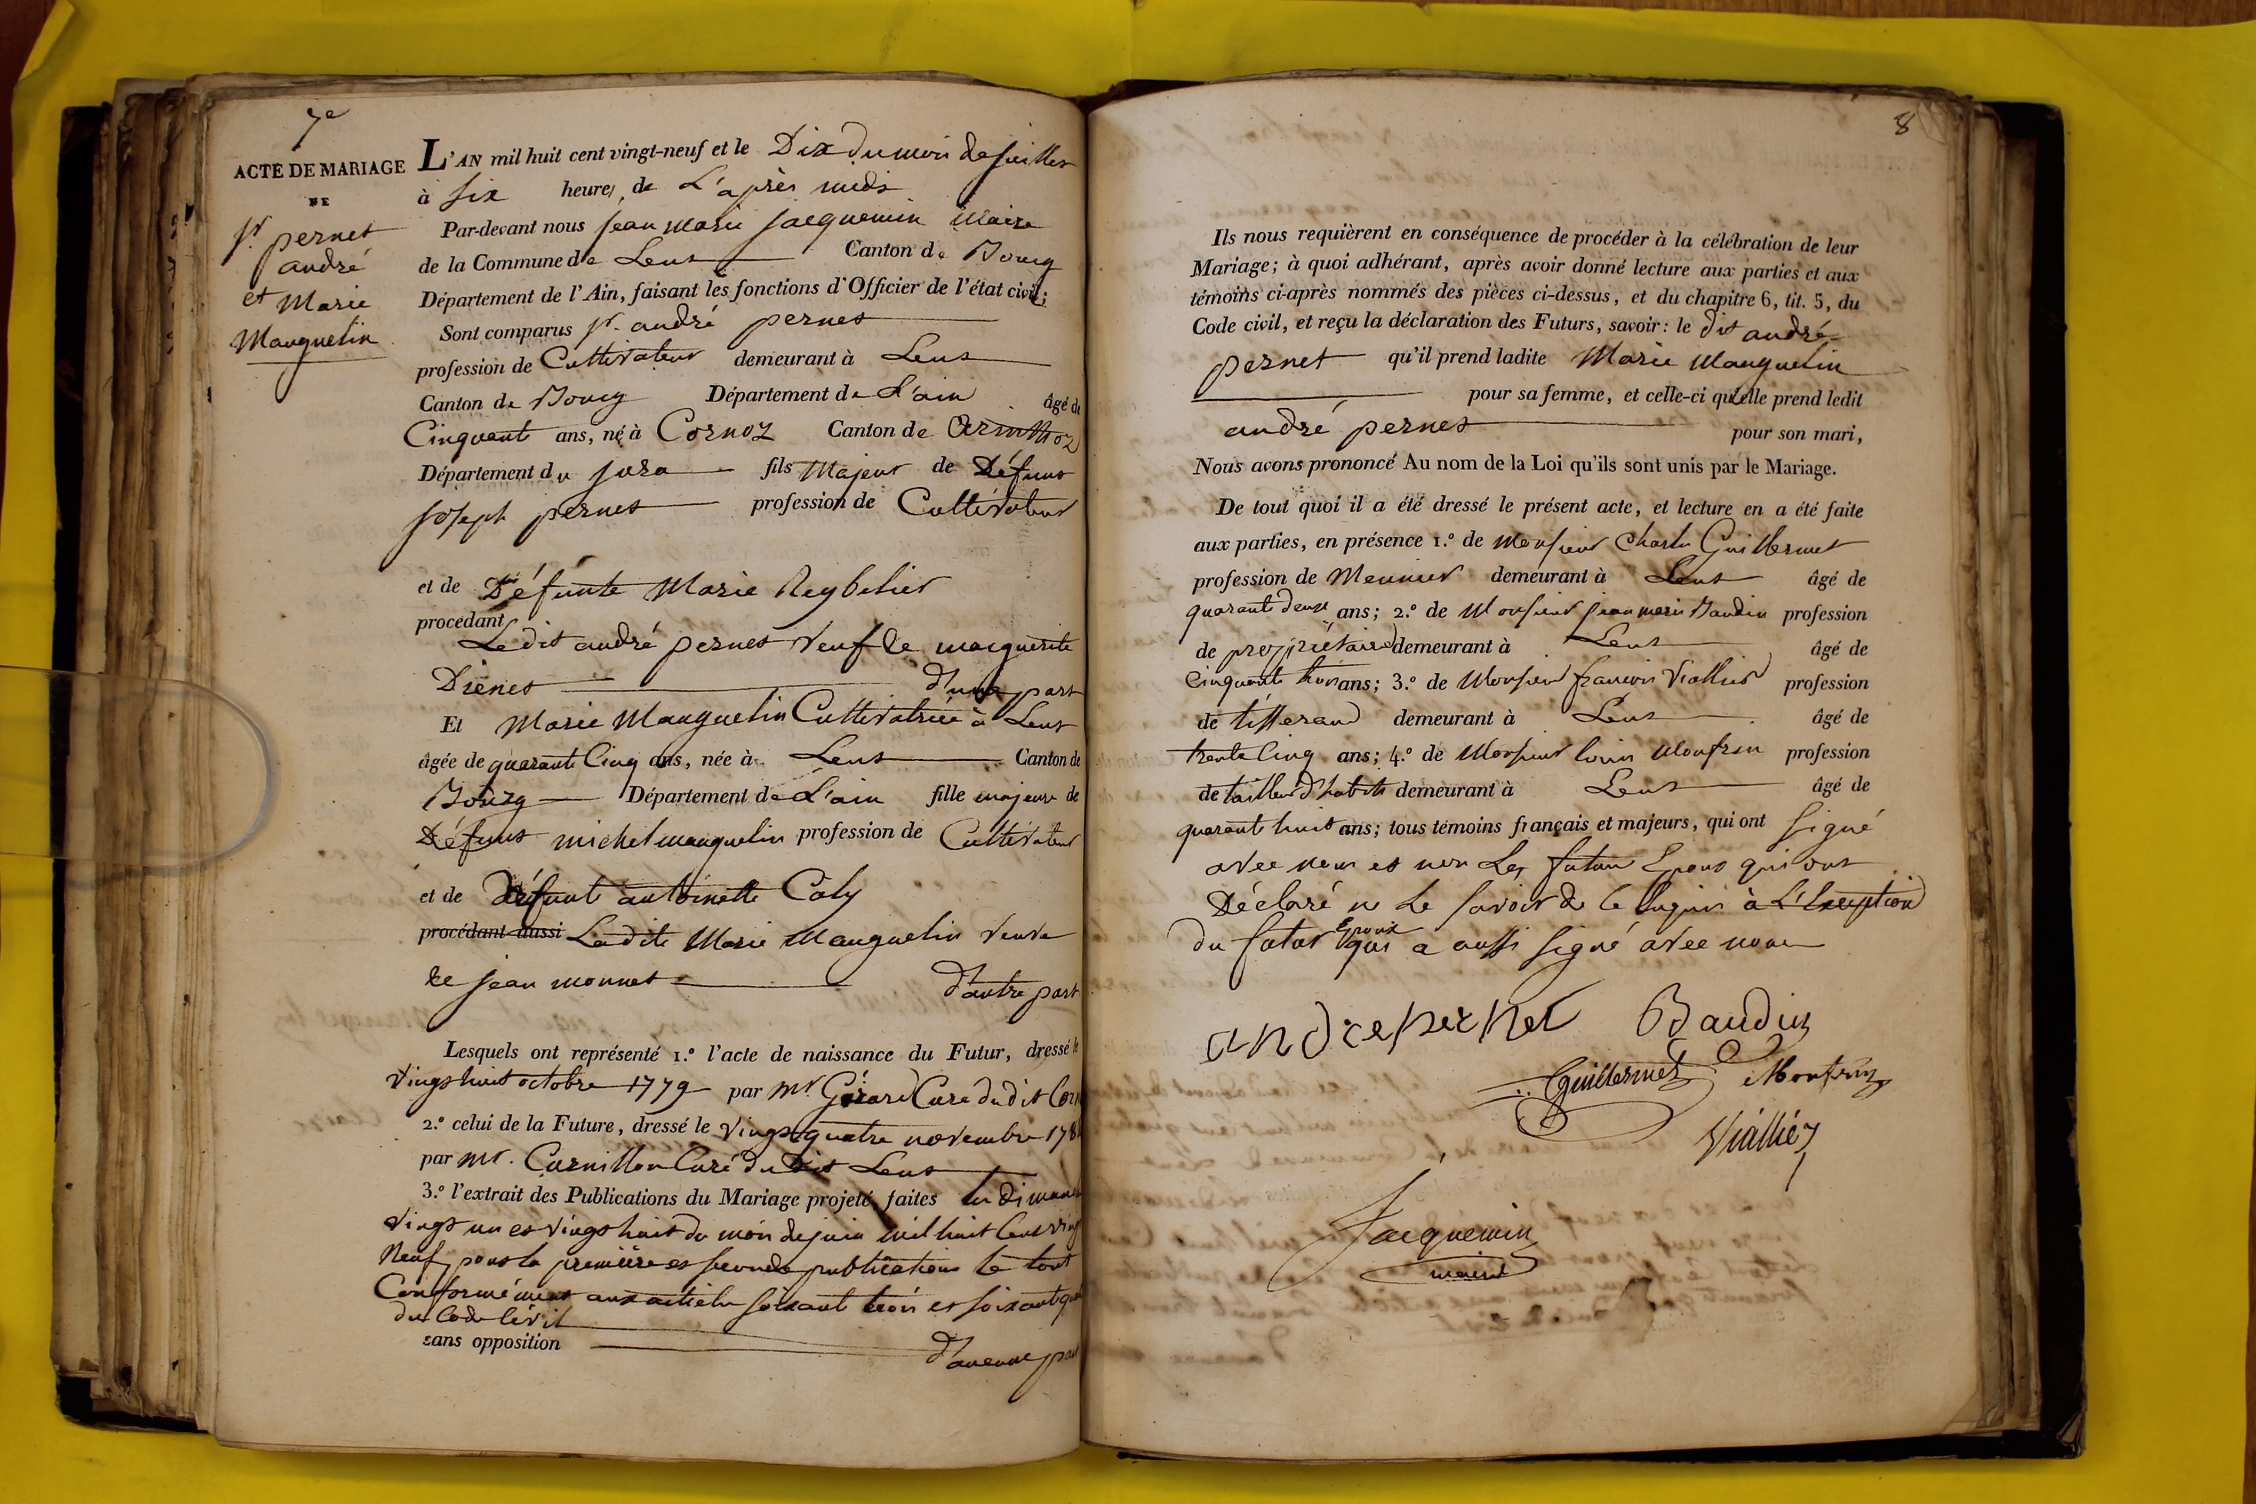 7e
ACTE DE MARIAGE
DE
Sr. pernet
andré
et Marie
Mauguelin
L'AN mil huit cent vingt-neuf et le Dix du mois de juillet
à Six heures de L'après midi
Par-devant nous jean marie jacquemin Maire
de la Commune de Lent Canton de Bourg
Département de l'Ain, faisant les fonctions d'Officier de l'état civil;
Sont comparus Sr. andré pernet
profession de Cultivateur demeurant à Lent
Canton de Bourg Département de L'ain âgé de
Cinquant ans, né à Cornoz Canton de Arinthoz
Département du jura fils Majeur de Défunt
joseph pernet profession de Cultivateur
et de Défunte Marie Reybelier
procédant
Ledit andré pernet veuf de marguerite
d'une part
Et Marie Mauguelin Cultivatrice à Lent
âgée de quarante Cinq ans, née à Lent Canton de
Bourg Département de L'ain fille majeure de
Défunt michel mauguelin profession de Cultivateur
et de Défunte antoinette Caly
procédant aussi Ladite Marie Mauguelin veuve
de jean monnet d'autre part
Lesquels ont représenté 1.º l'acte de naissance du Futur, dressé le
vingt huit octobre 1779 par Mr. Gérard Curé du dit Corn
2.º celui de la Future, dressé le vingt quatre novembre 178
par Mr. Curnillon Curé du dit Lent
3.º l'extrait des Publications du Mariage projeté, faites les dimanch
vingt un et vingt huit du mois de juin mil huit Cent ving
Neuf pour la première et seconde publications le tout
Conformément aux articles soixant trois et soixant qua
du Code Civil
sans opposition d'aucune part
8
Ils nous requièrent en conséquence de procéder à la célébration de leur
Mariage; à quoi adhérant, après avoir donné lecture aux parties et aux
témoins ci-après nommés des pièces ci-dessus, et du chapitre 6, tit. 5, du
Code civil, et reçu la déclaration des Futurs, savoir: le dit andré
pernet qu'il prend ladite Marie Mauguelin
pour sa femme, et celle-ci qu'elle prend ledit
andré pernet pour son mari,
Nous avons prononcé Au nom de la Loi qu'ils sont unis par le Mariage.
De tout quoi il a été dressé le présent acte, et lecture en a été faite
aux parties, en présence 1.º de Monsieur Charle Guillermet
profession de Meunier demeurant à Lent âgé de
quarante deux ans; 2.º de Monsieur jean marie Baudin profession
de propriétaire demeurant à Lent âgé de
Cinquante trois ans; 3.º de Monsieur françois Viallier profession
de tisserand demeurant à Lent âgé de
trente Cinq ans; 4.º de Monsieur louis Monfrin profession
de tailleur d'habits demeurant à Lent âgé de
quarante huit ans; tous témoins français et majeurs, qui ont signé
avec nous et non Les futurs Epoux qui ont
Déclaré ne le savoir de ce Enquis à L'Exception
du futur Epoux qui a aussi signé avec nous
andre pernet Baudin
Guillermet Monfrin
Viallier
Jacquemin
maire